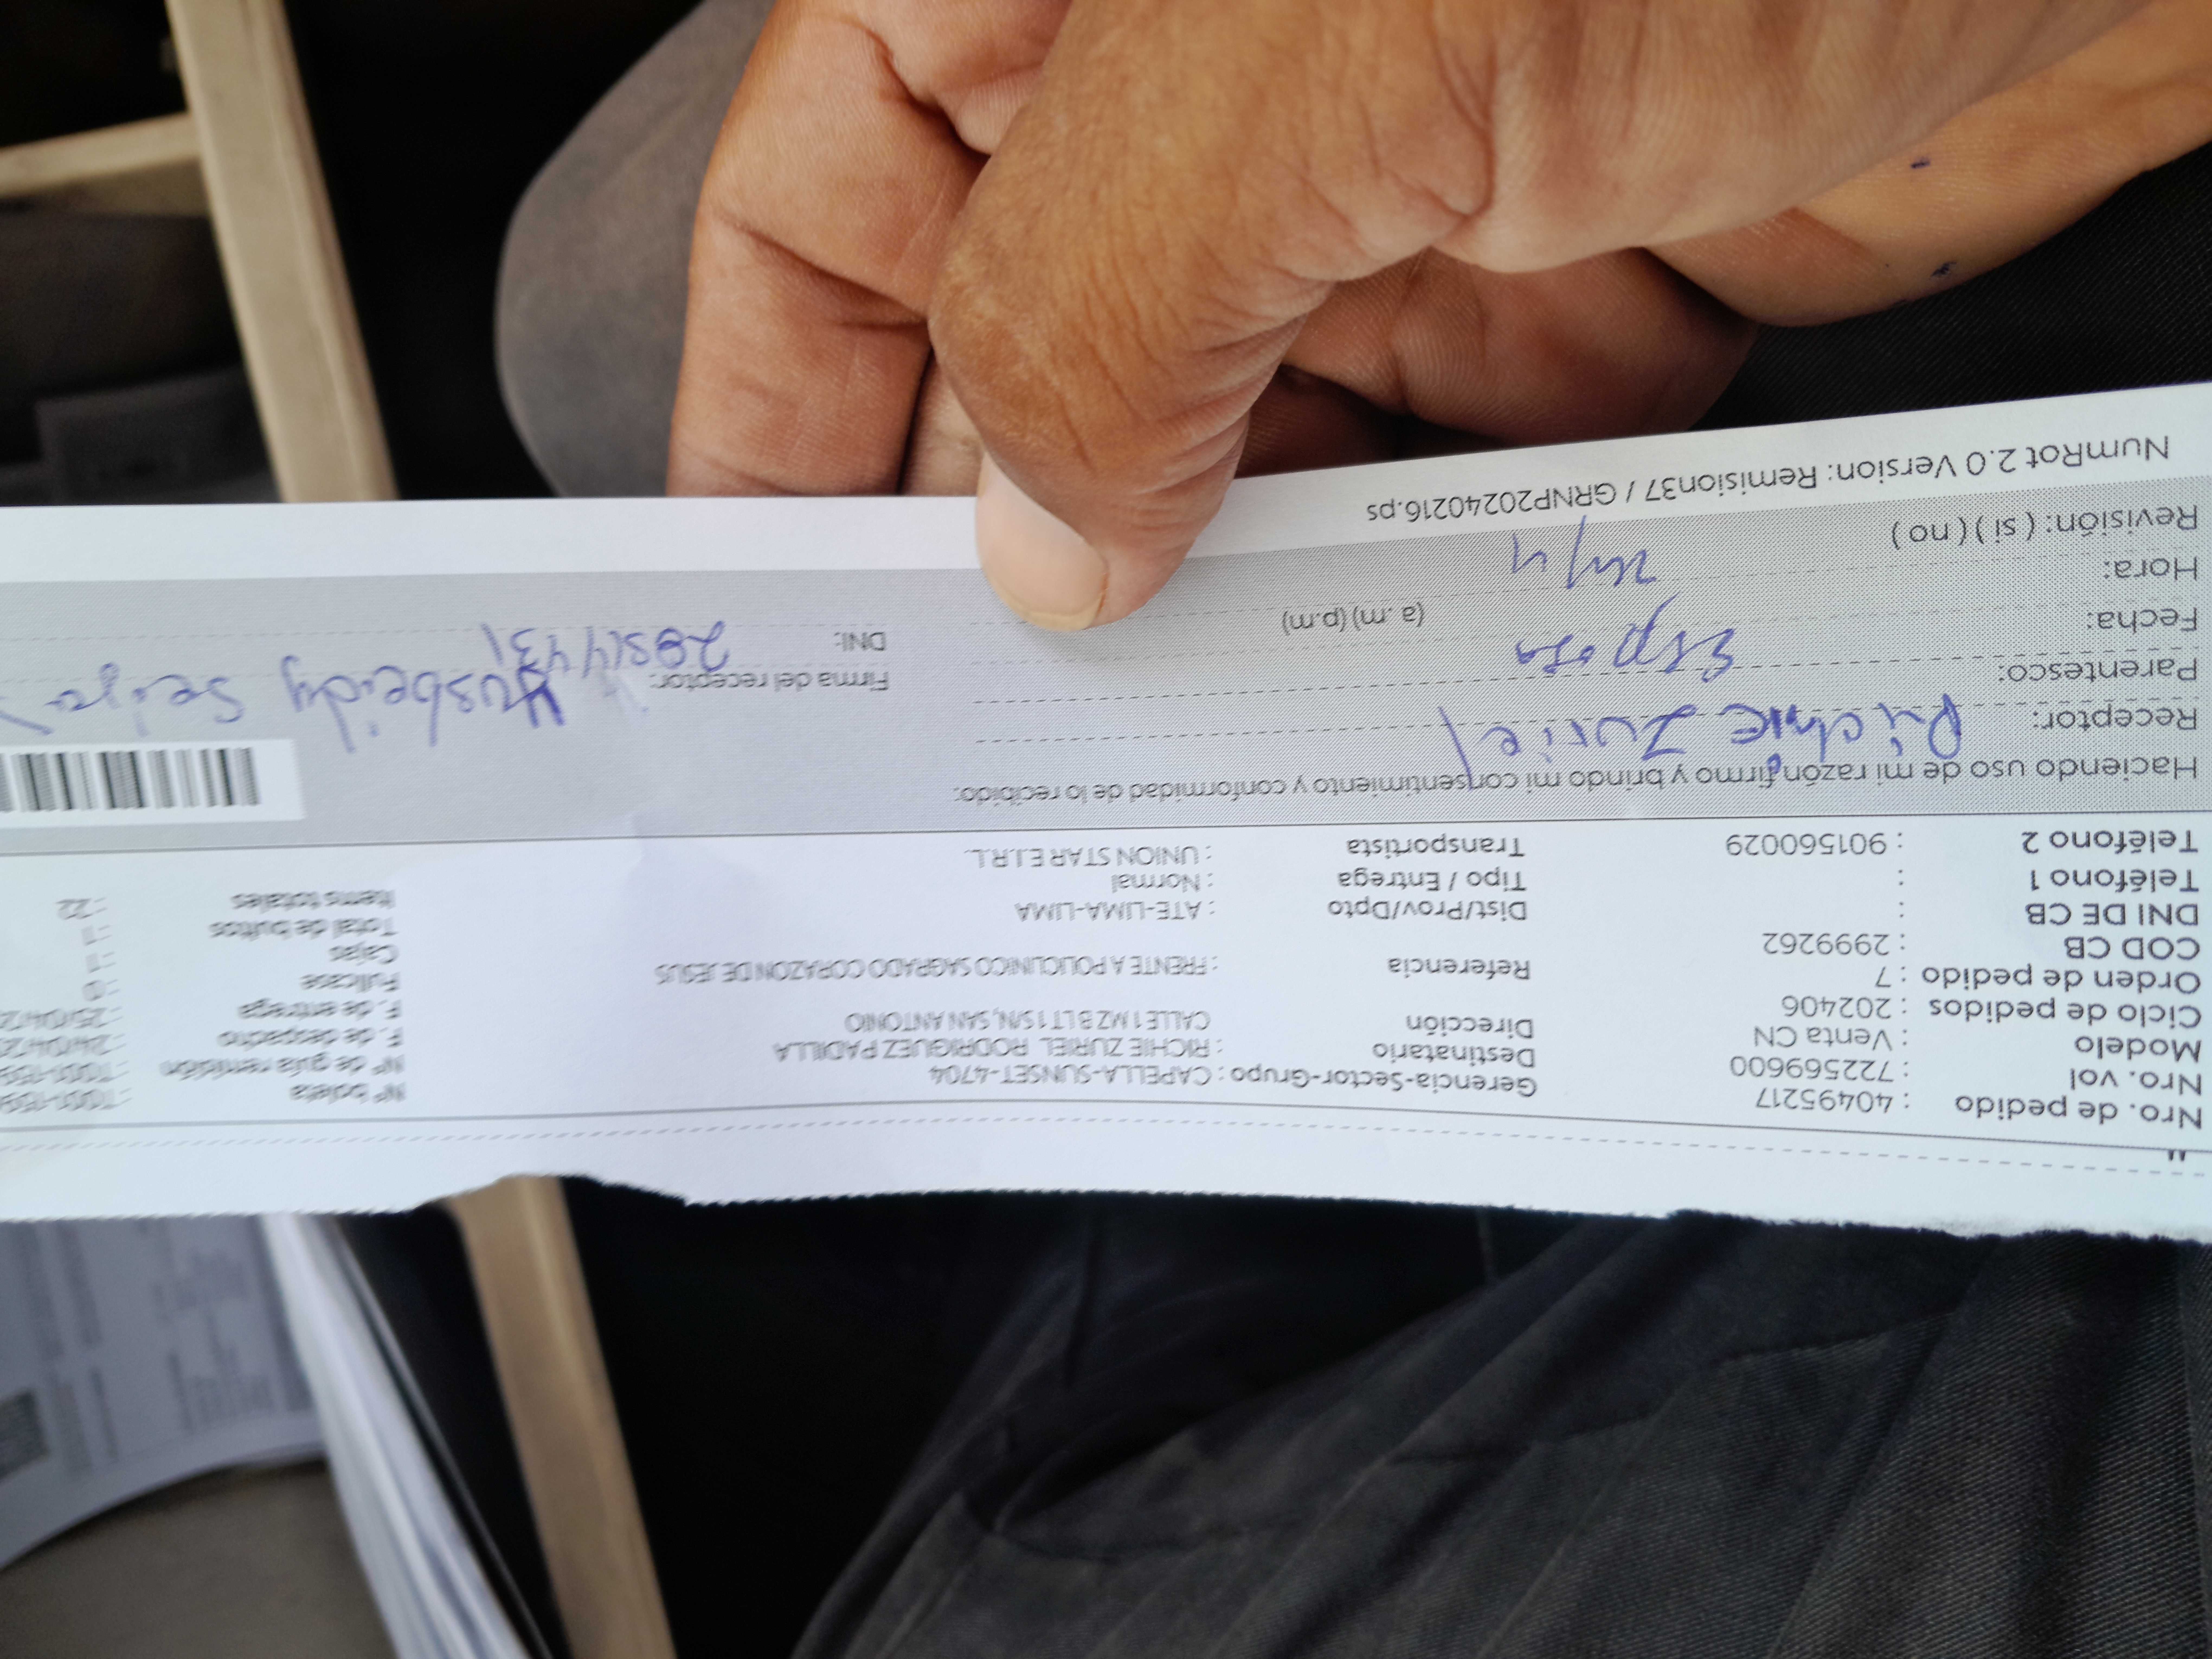 Nro. de pedido : 40495217
Nro. vol : 722569600
Modelo : Venta CN
Ciclo de pedidos : 202406
Orden de pedido : 7
COD CB : 2999262
DNI DE CB :
Teléfono 1 :
Teléfono 2 : 901560029
Gerencia-Sector-Grupo : CAPELLA-SUNSET-4704
Destinatario : RICHIE ZURIEL RODRIGUEZ PADILLA
Dirección CALLE 1 MZ B LT 1 S/N, SAN ANTONIO
Referencia : FRENTE A POLICLINICO SAGRADO CORAZON DE JESUS
Dist/Prov/Dpto : ATE-LIMA-LIMA
Tipo / Entrega : Normal
Transportista : UNION STAR E.I.R.L.
Nº boleta
Nº de guía remisión
F. de despacho : 24/04/2
F. de entrega : 25/04/2
Fullcase : 0
Cajas : 1
Total de bultos : 1
Items totales : 22
Haciendo uso de mi razón firmo y brindo mi consentimiento y conformidad de lo recibido:
Receptor: Richie Zuriel
Parentesco: Esposa
Fecha:
Hora: (a.m) (p.m)
Revisión: ( si ) ( no )
Firma del receptor: Yusbeidy
DNI:
NumRot 2.0 Version: Remision37 / GRNP20240216.ps